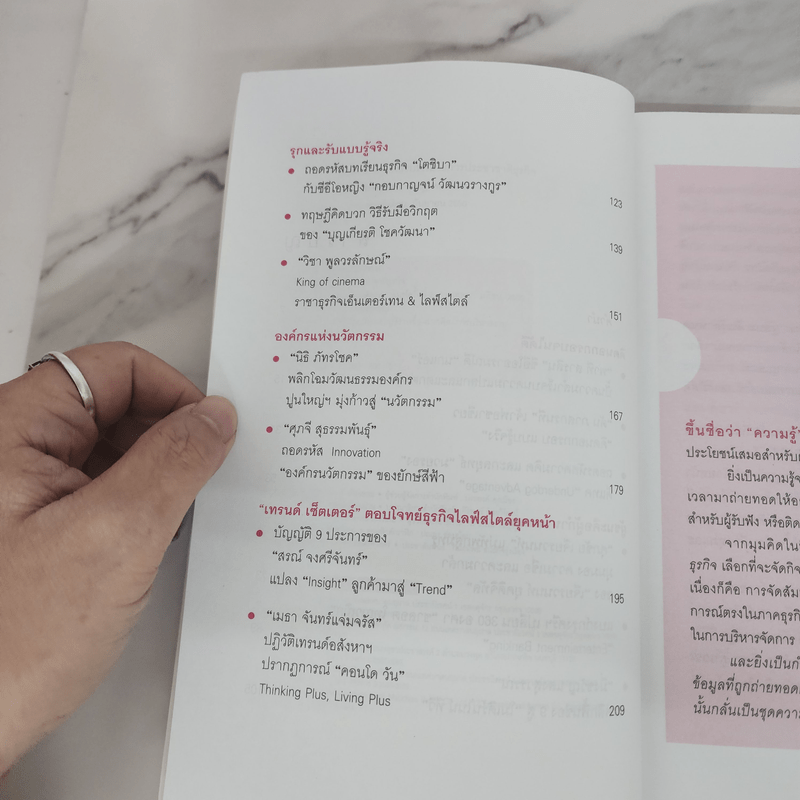 รุกและรับแบบรู้จริง
• ถอดรหัสบทเรียนธุรกิจ “โตชิบา”
กับซีอีโอหญิง “กอบกาญจน์ วัฒนวรางกูร”
123
• ทฤษฎีคิดบวก วิธีรับมือวิกฤต
ของ “บุญเกียรติ โชควัฒนา”
139
• “วิชา พูลวรลักษณ์”
King of cinema
ราชาธุรกิจเอ็นเตอร์เทน & ไลฟ์สไตล์
151
องค์กรแห่งนวัตกรรม
• “นิธิ ภัทรโชค”
พลิกโฉมวัฒนธรรมองค์กร
ปูนใหญ่ฯ มุ่งก้าวสู่ “นวัตกรรม”
167
• “ศุภจี สุธรรมพันธุ์”
ถอดรหัส Innovation
“องค์กรนวัตกรรม” ของยักษ์สีฟ้า
179
“เทรนด์ เซ็ตเตอร์” ตอบโจทย์ธุรกิจไลฟ์สไตล์ยุคหน้า
• บัญญัติ 9 ประการของ
“สรณ์ จงศรีจันทร์”
แปลง “Insight” ลูกค้ามาสู่ “Trend”
195
• “เมธา จันทร์แจ่มจรัส”
ปฏิวัติเทรนด์อสังหาฯ
ปรากฏการณ์ “คอนโด วัน”
Thinking Plus, Living Plus
209
ขึ้นชื่อว่า “ความรู้”
ประโยชน์เสมอสำหรับ
ยิ่งเป็นความรู้
เวลามาถ่ายทอดให้
สำหรับผู้รับฟัง หรือ
จากมุมคิดใน
ธุรกิจ เลือกที่จะจัด
เนื่องก็คือ การจัด
การณ์ตรงในภาคธุรกิจ
ในการบริหารจัดการ
และยิ่งเป็น
ข้อมูลที่ถูกถ่ายทอด
นั้นกลั่นเป็นชุด